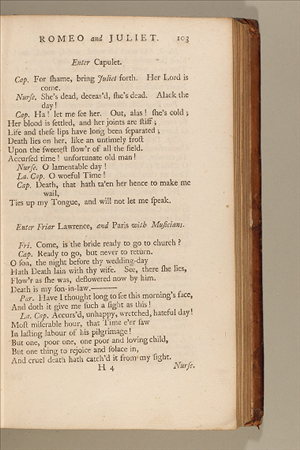 ROMEO and JULIET. 103
Enter Capulet.
Cap. For ſhame, bring Juliet forth. Her Lord is
come.
Nurſe. She's dead, deceas'd, ſhe's dead. Alack the
day!
Cap. Ha! let me ſee her. Out, alas! ſhe's cold;
Her blood is ſettled, and her joints are ſtiff;
Life and theſe lips have long been ſeparated;
Death lies on her, like an untimely froſt
Upon the ſweeteſt flow'r of all the field.
Accurſed time! unfortunate old man!
Nurſe. O lamentable day!
La. Cap. O woeful Time!
Cap. Death, that hath ta'en her hence to make me
wail,
Ties up my Tongue, and will not let me ſpeak.
Enter Friar Lawrence, and Paris with Muſicians.
Fri. Come, is the bride ready to go to church?
Cap. Ready to go, but never to return.
O ſon, the night before thy wedding-day
Hath Death lain with thy wife. See, there ſhe lies,
Flow'r as ſhe was, deflowered now by him.
Death is my ſon-in-law.———
Par. Have I thought long to ſee this morning's face,
And doth it give me ſuch a ſight as this!
La. Cap. Accurs'd, unhappy, wretched, hateful day!
Moſt miſerable hour, that Time e'er ſaw
In laſting labour of his pilgrimage!
But one, poor one, one poor and loving child,
But one thing to rejoice and ſolace in,
And cruel death hath catch'd it from my ſight.
H 4 Nurſe.